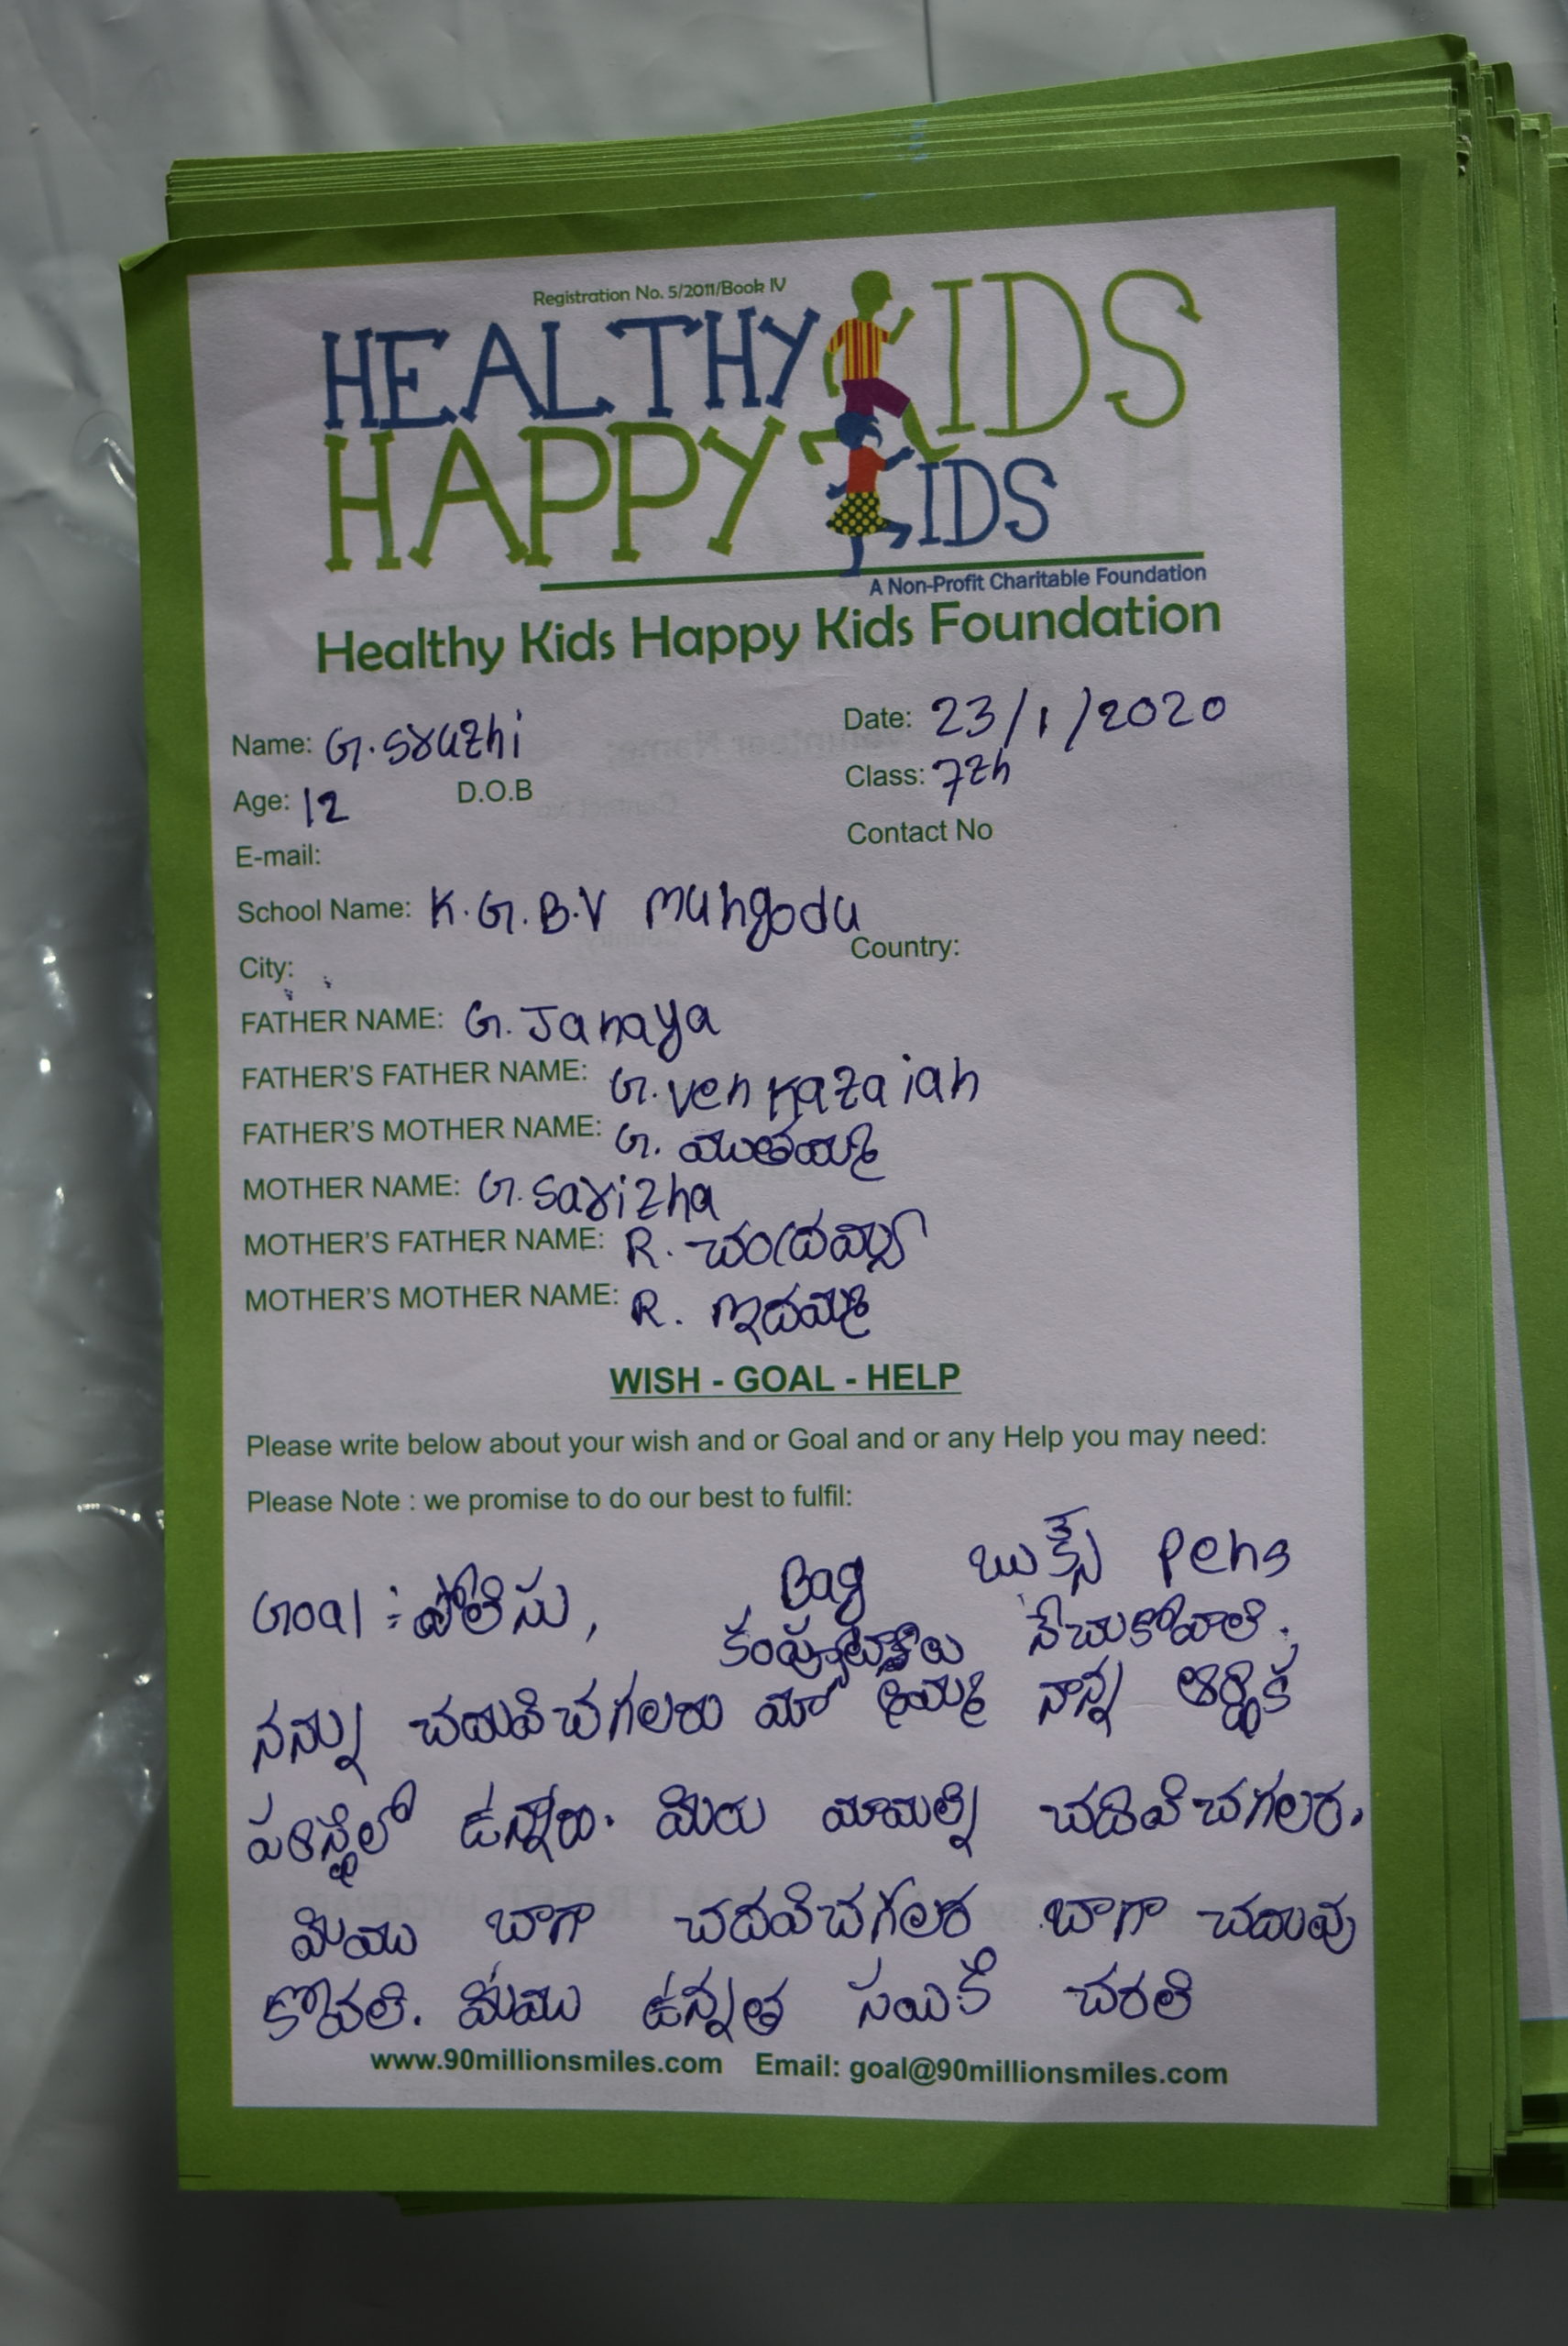 Registration No. 5/2011/Book IV
HEALTHY KIDS
HAPPY KIDS
A Non-Profit Charitable Foundation
Healthy Kids Happy Kids Foundation
Name: G. sruthi Date: 23/1/2020
Age: 12 D.O.B Class: 7th
E-mail: Contact No
School Name: K.G.B.V Mungodu
City: Country:
FATHER NAME: G. Janaya
FATHER'S FATHER NAME: G. Venkataiah
FATHER'S MOTHER NAME: G. ముతమ్మ
MOTHER NAME: G. saritha
MOTHER'S FATHER NAME: R.
MOTHER'S MOTHER NAME: R.
WISH - GOAL - HELP
Please write below about your wish and or Goal and or any Help you may need:
Please Note : we promise to do our best to fulfil:
Bag బుక్స్ Pens
Goal : పోలిసు, నేచుకోవాలి.
నన్ను చదువిచగలరు మా అమ్మ నాన్న ఆర్థిక
పరిస్థిలో ఉన్నారు. మిరు మామల్ని చదివిచగలర.
మిము బాగా చదవిచగలర బాగా చదువు
కోవలి. మిము ఉన్నత సయికి చరలి
www.90millionsmiles.com Email: goal@90millionsmiles.com